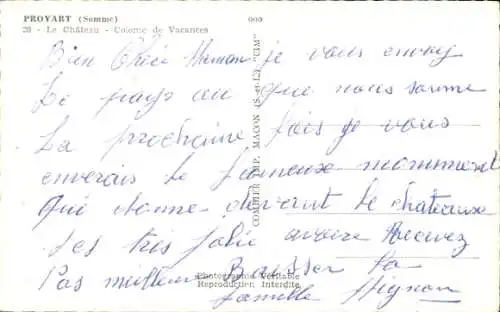 PROYART (Somme)
28 - Le Château - Colonie de Vacances
000
Bien Chère Maman je vous envoy
le pays au que nous somme
La prochaine fois je vous
enverais le fameux monument
qui donne devant le chateaux
Ses très jolie avoire Recevez
Pas meilleure Baisser La
famille Mignon
COMBIER IMP. MACON (S.-et-L.) "CIM"
Photographie Véritable
Reproduction Interdite